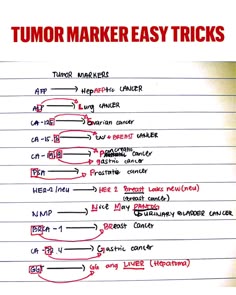 TUMOR MARKER EASY TRICKS
TUMOR MARKERS
AFP → HepAFPtic CANCER
→ Lung CANCER
CA-125 → Ovarian cancer
CA-15.3 → BREAST CANCER
CA-19.9 → Pancreatic cancer
gastric cancer
PSA → Prostate cancer
HER-2/neu → HER 2 Breast Looks new(neu)
(breast cancer)
NMP → Nice May
URINARY BLADDER CANCER
BRCA-1 → BReast Cancer
CA 4 → Gastric cancer
→ ang LIVER (Hepatoma)